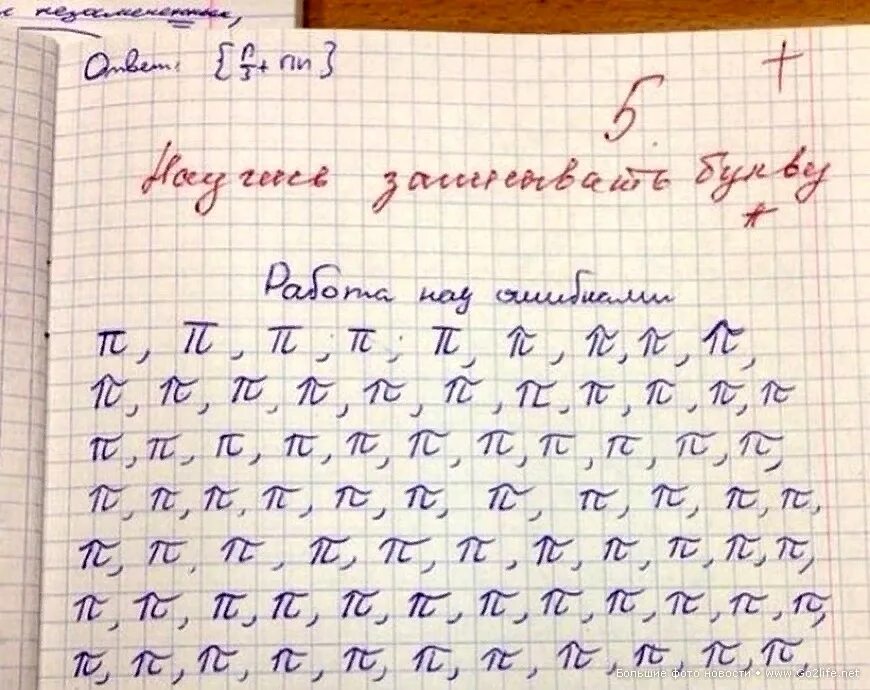 Ответ: {п/3 + пn}
5 +
Научись записывать букву
π
Работа над ошибками
π, π, π, π, π, π, π, π, π,
π, π, π, π, π, π, π, π, π, π, π
π, π, π, π, π, π, π, π, π, π, π,
π, π, π, π, π, π, π, π, π, π, π,
π, π, π, π, π, π, π, π, π, π, π,
π, π, π, π, π, π, π, π, π, π, π, π,
π, π, π, π, π, π, π, π, π, π, π,
Большие фото новости • www.Go2life.net